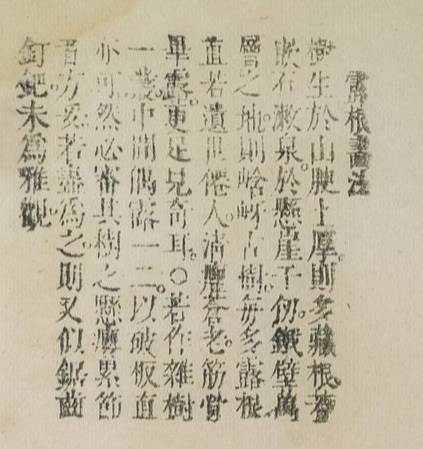 露根畫法
樹生於山腴土厚。則多藏根。若
嵌石漱泉。於懸崖千仞。壁萬
層之地。則岈古樹。每多露根。
直若遺世僊人。清癯蒼老。筋骨
畢露。更足見奇耳。○若作雜樹
一叢。中間偶露一二。以破板直
亦可然必審其樹之懸癭累節
者方若盡為之。則又似鋸齒
釘鈀。未為雅觀。